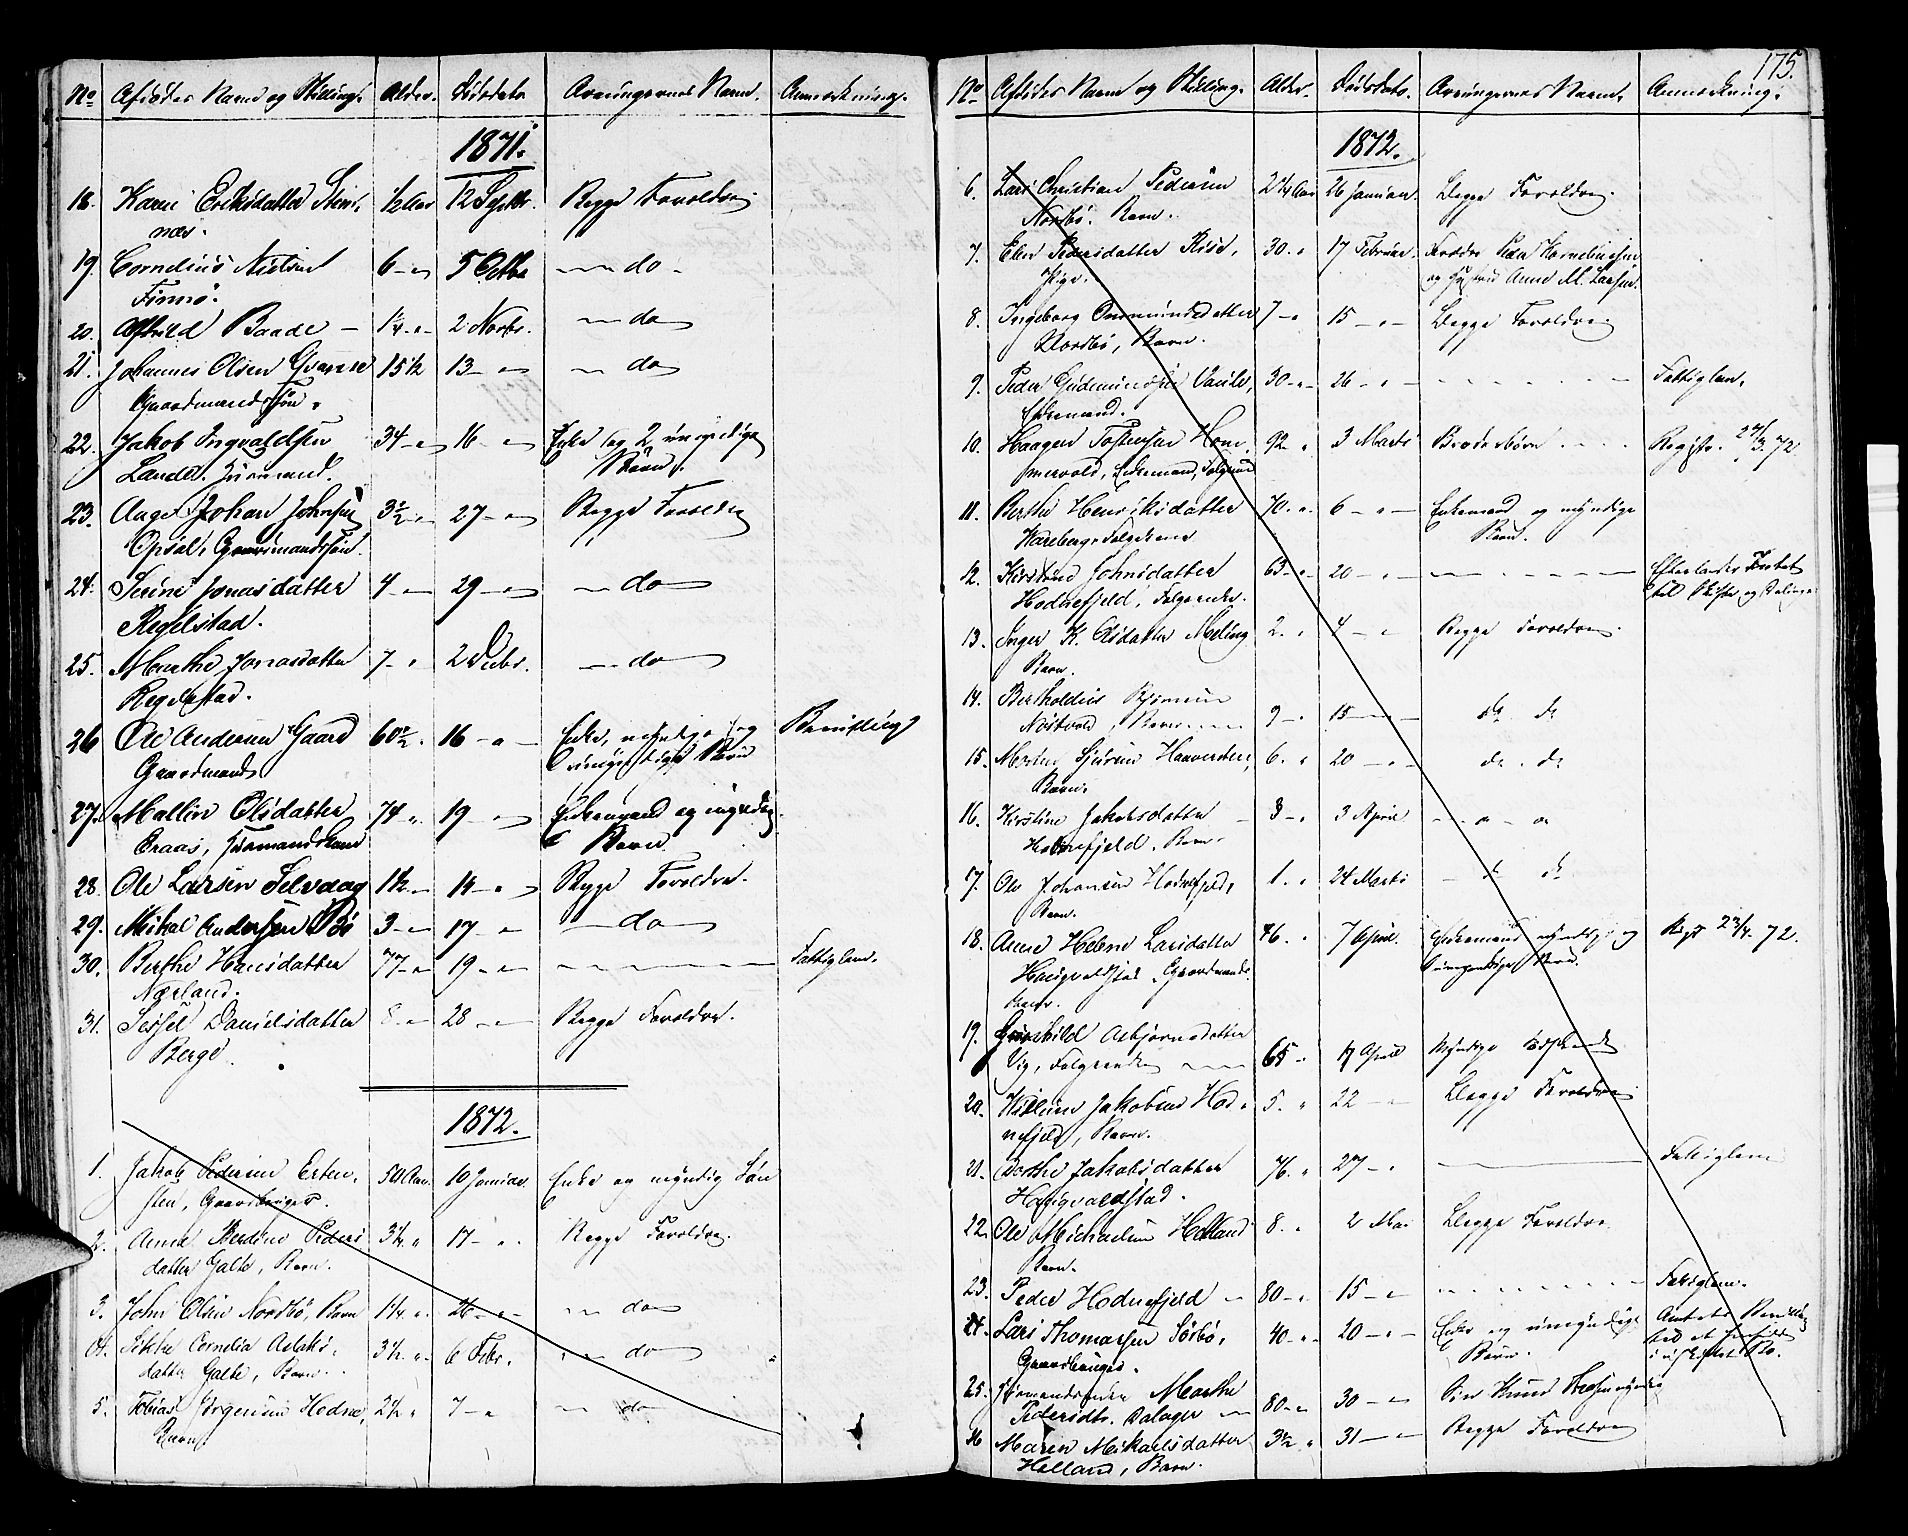 No Afdødes Navn og Stilling. Alder. Dødsdato Arvingernes Navn. Anmærkning.
1871.
18. Karen Eriksdatter Stens-
næs.
1/2 Aar 12 Septbr. Begge Forældre
19. Cornelius Nielsen
Finnø.
6 - " 5 Octbr - do -
20. Alfhild Baade - 1/4 - " 2 Novbr. - do
21. Johannes Olsen Qvame 15 1/2 13 - " - do
Gaardmandssøn.
22. Jakob Ingvaldsen 34 - " 16 - " Enke og 2 umyndige
Landes. Huusmand. Børn.
23. Aage Johan Johnsen 3 1/2 - " 27 - " Begge Forældre
Opsal, Gaardmandssøn.
24. Serine Jonasdatter 4 - " 29 - " - do
Regelstad.
25. Marthe Jonasdatter 7 - " 2 Decbr. - do
Regelstad.
26 Ole Andersen Gaard 60 1/2 . 16 - " - Enke, myndige og
Gaardmand umyndige Børn
Bevilling
27. Mallin Olsdatter 74 " 19 - " Enkemand og myndige
Eraas, Huusmandskone Børn
28. Ole Larsen Selvaag 1 1/2 - 14 - " Begge Forældre.
29. Mikal Andersen Bø 3 - " 17 - " - do
30. Berthe Hansdatter 77 - " 19 - " - Fattiglem.
Nærland.
31. Sissel Danielsdatter 8 - " 28 - " Begge Forældre.
Berge
1872.
1. Jakob Pedersen Erten-
sten, Gaardbruger.
50 Aar. 10 Januar. Enke og myndig Søn
2. Anna Berdine Peders 3 1/2 " 17 - " Begge Forældre.
datter Galte, Barn.
3. John Olsen Nordbø, Barn 1 1/4 " 26 - " - do
4. Sikke Cornelia Aslaks- 3 1/2 " 6 Febr. " do
datter Galte, Barn.
5. Tobias Jørgensen Hodne, 2 1/2 " 7 - " - do
Barn.
175.
No Afdødes Navn og Stilling. Alder. Dødsdato. Arvingernes Navn. Anmærkning.
1872.
6. Lars Christian Pedersen 2 1/4 Aar 26 Januar. Begge Forældre.
Nordbø. Barn.
7. Elen Pedersdatter 30 " 17 Februar. Peder Kornelius​sen
Pige. og Anne M. Larsen.
8. Ingeborg Ommundsdatter 7 - " 15 - " - Begge Forældre
Nordbø, Barn.
9. Peder Gudmundsen 30 - " 26 - " - Fattiglem.
Enkemand.
10. Haagen Tostensen Hom- 92 " 3 Marts Broderbørn Registr. 27/3 72
mervold, Enkemand,
11. Berthe Henriksdatter 70 " 6 - " - Enkemand og myndige
Hareberg, Barn.
12. Kirstine Johnsdatter 63 - " 20 - " - Efterlader Intet
Hodnefjeld, til Skifte og Deling
13. Inger K. Olsdatter Meling 2. " 4 - " Begge Forældre.
Barn.
14. Bertholdius Bjørnsen
Nostvold, Barn 9 - " 15 - - do do
15. Sjursen 6. " 20 - " - do . do
Barn.
16. Kirstine Jakobsdatter - 3 - " 3 April " - "
Hodnefjeld, Barn.
17. Ole Johansen Hodnefjeld, 1. " 24 Marts - do do
Barn.
18. Anne Helene Larsdatter 46. " 7 April. Enkemand myndige og Regt 23/4 72.
Haugvaldstad, Gaardmands- umyndige Børn.
kone.
19. Gunhild Asbjørnsdatter
Vig, 65 " 17 April Myndige Sødskende
20. Jakobsen Hod- 5. " 22 - " Begge Forældre
nefjeld, Barn.
21. Berthe Jakobsdatter 76. " 27 - " Fattiglem
Haugvaldstad.
22. Ole Michaelsen Helland 8. " 2 Mai Begge Forældre
Barn.
23. Peder Hodnefjeld - 80 - " 15 - " Fattiglem.
24. Lars Thomassen Sørbø, 40 - " 20 - " - Enke og umyndige
Gaardbruger. Børn.
Amtets Bevilling
til at
i uskiftet Bo.
25. Huusmandsenke Marthe
Pedersdtr. Dalager 80 - " 30 - " Søn Knud
26 Maren Mikaelsdatter 3 1/2 " 31 - " Begge Forældre
Helland, Barn.